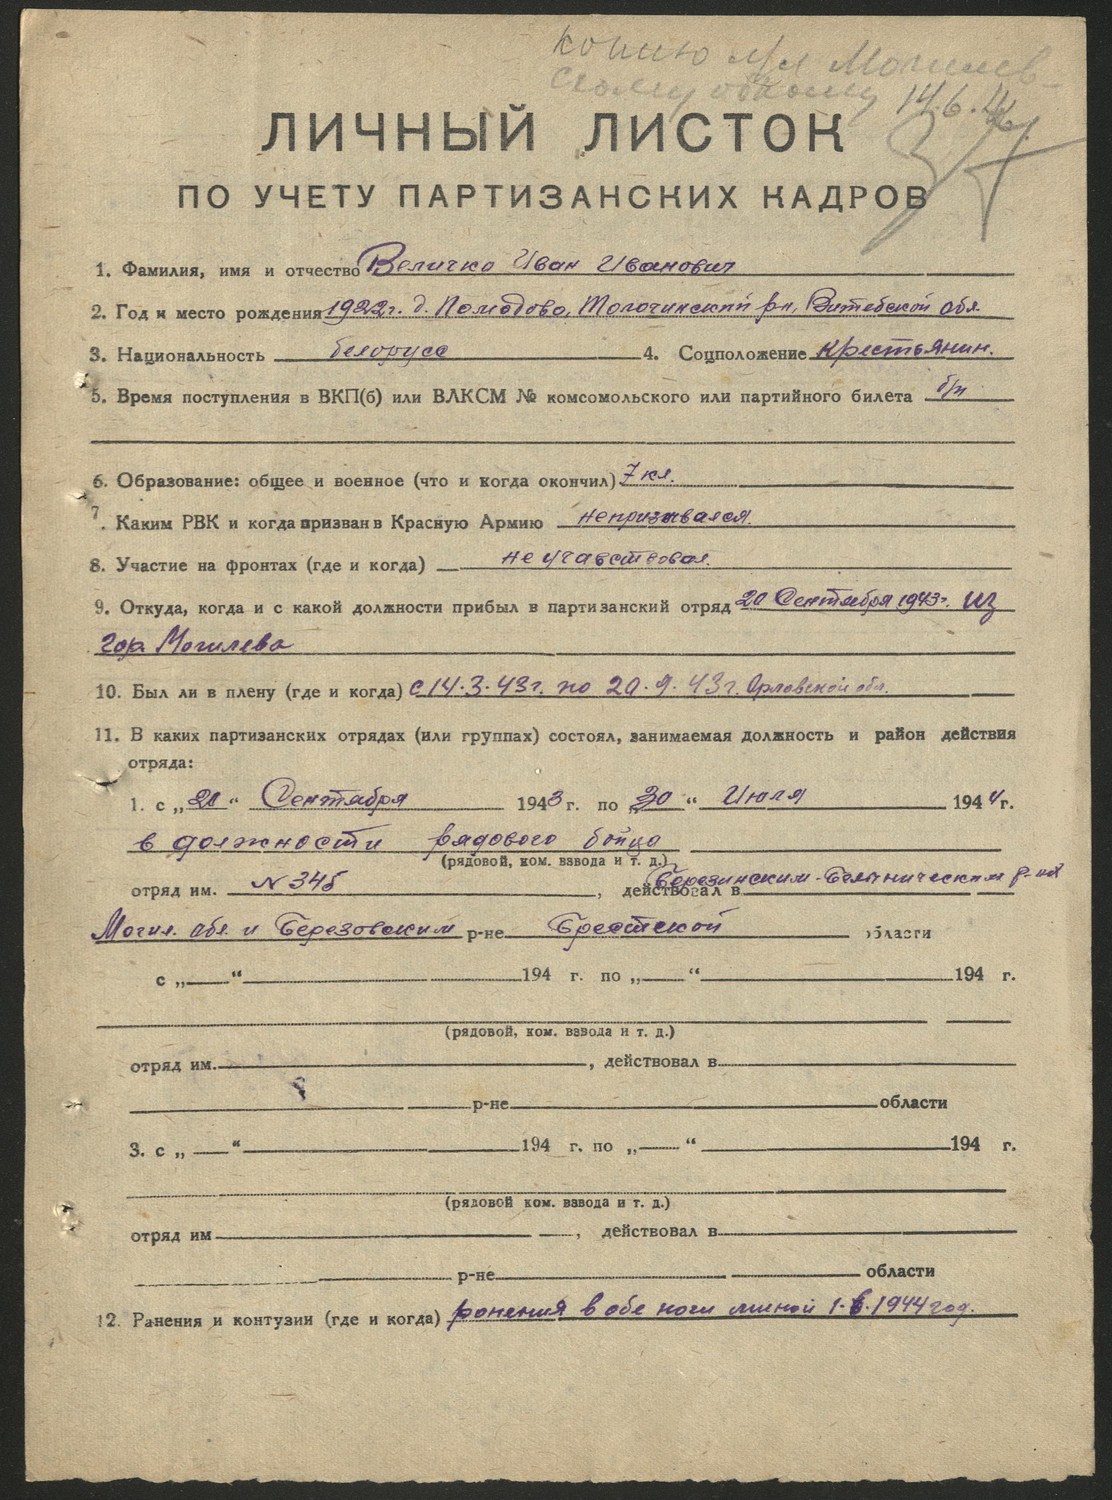 копию л/л Могилев-
скому обкому 14.6.46
ЛИЧНЫЙ ЛИСТОК
ПО УЧЕТУ ПАРТИЗАНСКИХ КАДРОВ
1. Фамилия, имя и отчество Величко Иван Иванович
2. Год и место рождения 1922г. д. Толочинский рн, Витебской обл.
3. Национальность белорусс 4. Соцположение крестьянин.
5. Время поступления в ВКП(б) или ВЛКСМ № комсомольского или партийного билета б/п
6. Образование: общее и военное (что и когда окончил) 7 кл.
7. Каким РВК и когда призван в Красную Армию непризывался.
8. Участие на фронтах (где и когда) не учавствовал.
9. Откуда, когда и с какой должности прибыл в партизанский отряд 20 Сентября 1943г. из
гор. Могилева
10. Был ли в плену (где и когда) с 14.3.43г. по 20.9.43г. Орловской обл.
11. В каких партизанских отрядах (или группах) состоял, занимаемая должность и район действия
отряда:
1. с „20“ Сентября 1943 г. по „30“ Июля 1944 г.
в должности рядового бойца
(рядовой, ком. взвода и т. д.)
отряд им. N 345, действовал в Березинским-Белыническим р-нах
Могил. обл. и Березовским р-не Брестской области
с „ “ 194 г. по „ “ 194 г.
(рядовой, ком. взвода и т. д.)
отряд им. , действовал в
р-не области
3. с „ “ 194 г. по „ “ 194 г.
(рядовой ком. взвода и т. д.)
отряд им , действовал в
р-не области
12. Ранения и контузии (где и когда) ранения в обе ноги миной 1.6.1944 год.